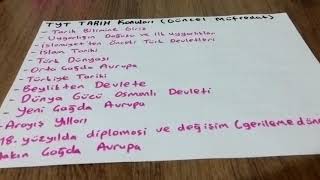 TYT TARİH Konuları (Güncel Müfredat)
- Tarih Bilimine Giriş
- Uygarlığın Doğuşu ve İlk Uygarlıklar
- İslamiyetten Önceki Türk Devletleri
- İslam Tarihi
- Türk Dünyası
- Orta Çağda Avrupa
- Türkiye Tarihi
- Beylikten Devlete
- Dünya Gücü Osmanlı Devleti
- Yeni Çağda Avrupa
- Arayış Yılları
18. yüzyılda diplomasi ve değişim (gerileme döne
Yakın Çağda Avrupa